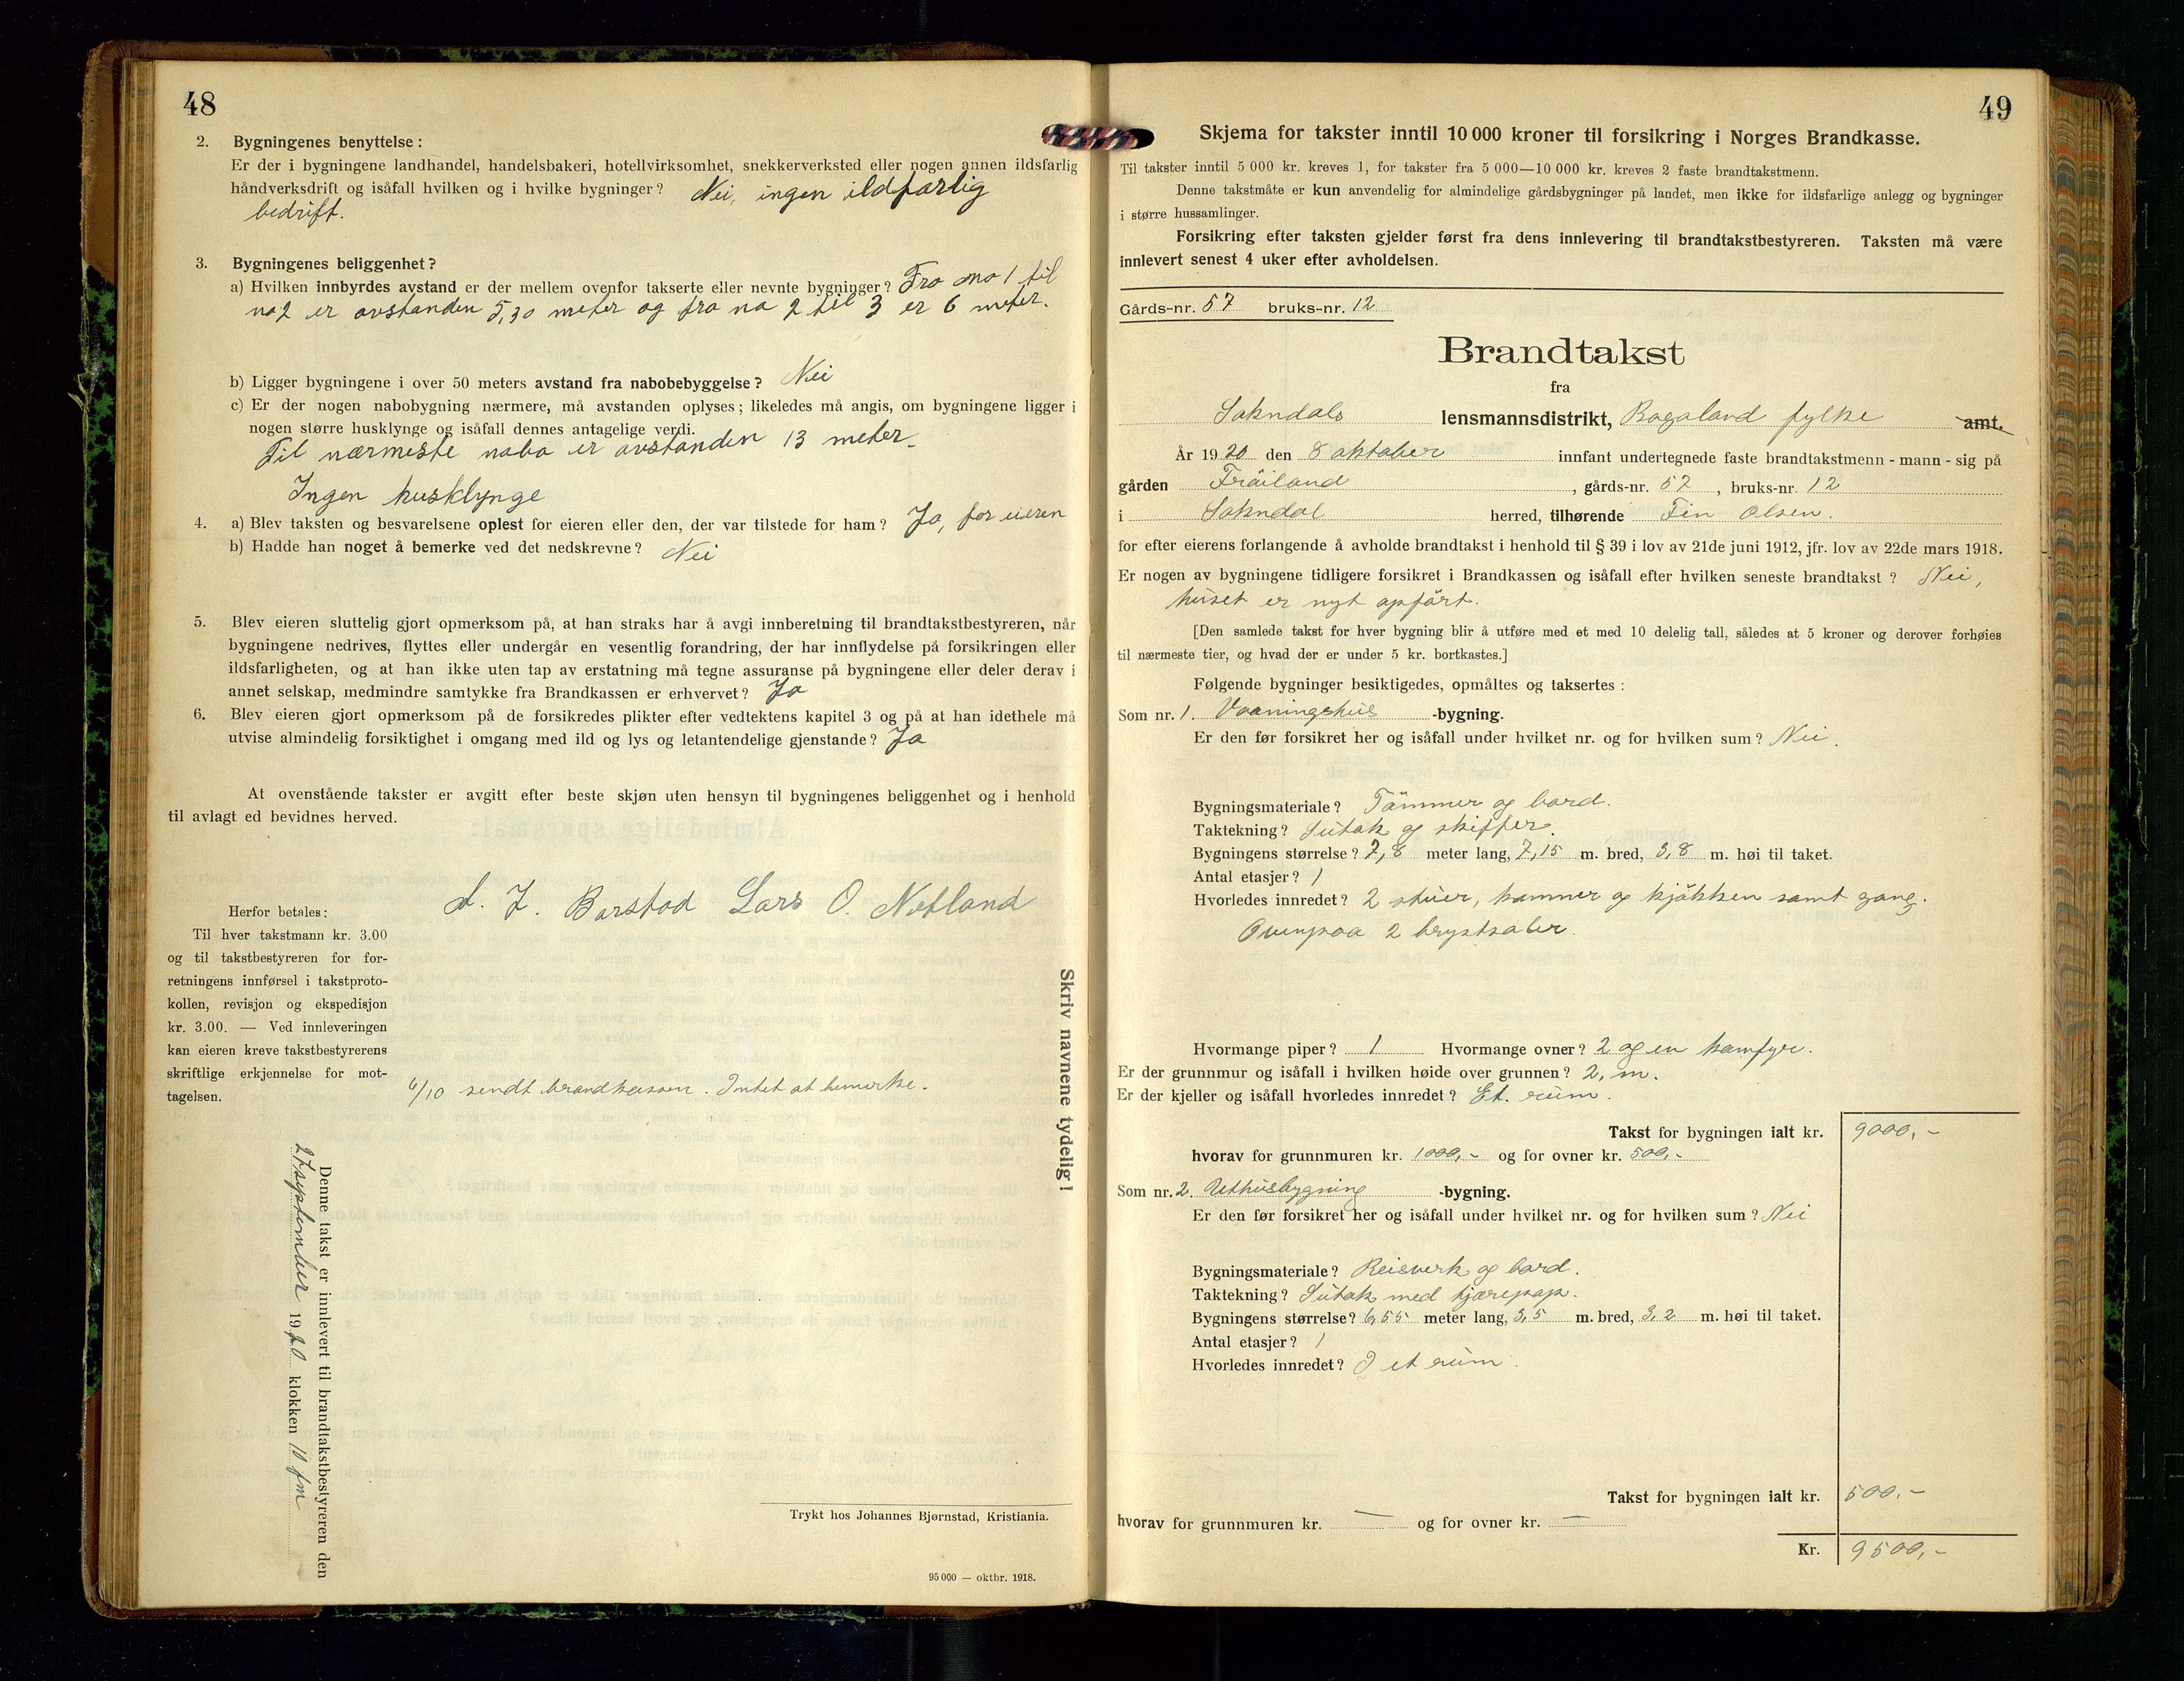 48
2. Bygningenes benyttelse:
Er der i bygningene landhandel, handelsbakeri, hotellvirksomhet, snekkerverksted eller nogen annen ildsfarlig
håndverksdrift og isåfall hvilken og i hvilke bygninger? Nei, ingen ildfarlig
bedrift.
3. Bygningenes beliggenhet?
a) Hvilken innbyrdes avstand er der mellem ovenfor takserte eller nevnte bygninger? Fra no 1 til
no 2 er avstanden 5,30 meter og fra no 2 til 3 er 6 meter.
b) Ligger bygningene i over 50 meters avstand fra nabobebyggelse? Nei
c) Er der nogen nabobygning nærmere, må avstanden oplyses; likeledes må angis, om bygningene ligger i
nogen større husklynge og isåfall dennes antagelige verdi.
Til nærmeste nabo er avstanden 13 meter.
Ingen husklynge
4. a) Blev taksten og besvarelsene oplest for eieren eller den, der var tilstede for ham? Ja, for eieren
b) Hadde han noget å bemerke ved det nedskrevne? Nei
5. Blev eieren sluttelig gjort opmerksom på, at han straks har å avgi innberetning til brandtakstbestyreren, når
bygningene nedrives, flyttes eller undergår en vesentlig forandring, der har innflydelse på forsikringen eller
ildsfarligheten, og at han ikke uten tap av erstatning må tegne assuranse på bygningene eller deler derav i
annet selskap, medmindre samtykke fra Brandkassen er erhvervet? Ja
6. Blev eieren gjort opmerksom på de forsikredes plikter efter vedtektens kapitel 3 og på at han idethele må
utvise almindelig forsiktighet i omgang med ild og lys og letantendelige gjenstande? Ja
At ovenstående takster er avgitt efter beste skjøn uten hensyn til bygningenes beliggenhet og i henhold
til avlagt ed bevidnes herved.
Barstad Lars O. Netland
Herfor betales:
Til hver takstmann kr. 3.00
og til takstbestyreren for for-
retningens innførsel i takstproto-
kollen, revisjon og ekspedisjon
kr. 3.00. — Ved innleveringen
kan eieren kreve takstbestyrerens
skriftlige erkjennelse for mot-
tagelsen.
6/10 sendt brandkassen. Intet at bemerke.
Skriv navnene tydelig!
Denne takst er innlevert til brandtakstbestyreren den
27 september 1920 klokken 11 fm
Trykt hos Johannes Bjørnstad, Kristiania.
95 000 — oktbr. 1918.
49
Skjema for takster inntil 10 000 kroner til forsikring i Norges Brandkasse.
Til takster inntil 5 000 kr. kreves 1, for takster fra 5 000—10 000 kr. kreves 2 faste brandtakstmenn.
Denne takstmåte er kun anvendelig for almindelige gårdsbygninger på landet, men ikke for ildsfarlige anlegg og bygninger
i større hussamlinger.
Forsikring efter taksten gjelder først fra dens innlevering til brandtakstbestyreren. Taksten må være
innlevert senest 4 uker efter avholdelsen.
Gårds-nr. 57 bruks-nr. 12
Brandtakst
fra
Sokndals lensmannsdistrikt, Rogaland fylke amt.
År 1920 den 8 oktober innfant undertegnede faste brandtakstmenn - mann - sig på
gården Fröiland, gårds-nr. 57, bruks-nr. 12
i Sokndal herred, tilhørende Fin Olsen.
for efter eierens forlangende å avholde brandtakst i henhold til § 39 i lov av 21de juni 1912, jfr. lov av 22de mars 1918.
Er nogen av bygningene tidligere forsikret i Brandkassen og isåfall efter hvilken seneste brandtakst? Nei,
huset er nyt opført.
[Den samlede takst for hver bygning blir å utføre med et med 10 delelig tall, således at 5 kroner og derover forhøies
til nærmeste tier, og hvad der er under 5 kr. bortkastes.]
Følgende bygninger besiktigedes, opmåltes og taksertes:
Som nr. 1. Vaaningshus -bygning.
Er den før forsikret her og isåfall under hvilket nr. og for hvilken sum? Nei.
Bygningsmateriale? Tømmer og bord.
Taktekning? Sutak og skiffer.
Bygningens størrelse? 7,8 meter lang, 7,15 m. bred, 3,8 m. høi til taket.
Antal etasjer? 1
Hvorledes innredet? 2 stuer, kammer og kjøkken samt gang.
Ovenpaa 2 brystsaler.
Hvormange piper? 1 Hvormange ovner? 2 og en komfyr.
Er der grunnmur og isåfall i hvilken høide over grunnen? 2, m.
Er der kjeller og isåfall hvorledes innredet? Et. rum.
Takst for bygningen ialt kr. 9000,-
hvorav for grunnmuren kr. 1000,- og for ovner kr. 500,-
Som nr. 2. Uthusbygning -bygning.
Er den før forsikret her og isåfall under hvilket nr. og for hvilken sum? Nei
Bygningsmateriale? Reisverk og bord.
Taktekning? Sutak med tjærepap.
Bygningens størrelse? 6,55 meter lang, 3,5 m. bred, 3,2 m. høi til taket.
Antal etasjer? 1
Hvorledes innredet? I et rum.
Takst for bygningen ialt kr. 500.-
hvorav for grunnmuren kr. — og for ovner kr. —
Kr. 9500,-